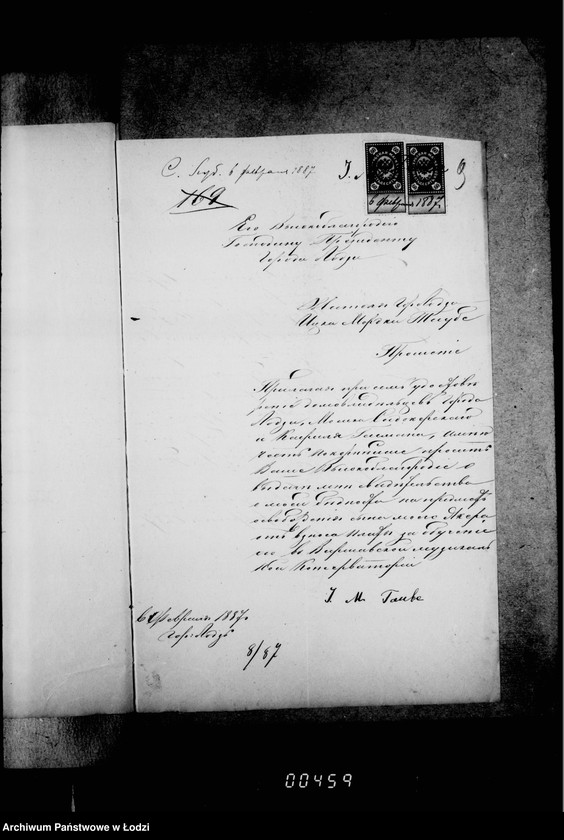 6 февраля 1887
169
9
6 февр 1887
Его Высокоблагородию
Господину Президенту
города Лодзи
Жителя гор. Лодзи
Ицка Мордки Таубе
Прошение
Прилагая при семъ удостовѣ
рение домовладѣльцевъ города
Лодзи, Мошка
и имѣю
честь покорнѣйше просить
Ваше Высокоблагородие о
выдачи мнѣ свидѣтельства
о моей бѣдности на предметъ
освобождения сына моего
отъ взноса платы за обучение
его въ Варшавской музыкаль
ной Консерватории
I. M. Таубе
6 Февраля 1887 г.
гор. Лодзь
8/87
00459
Archiwum Państwowe w Łodzi